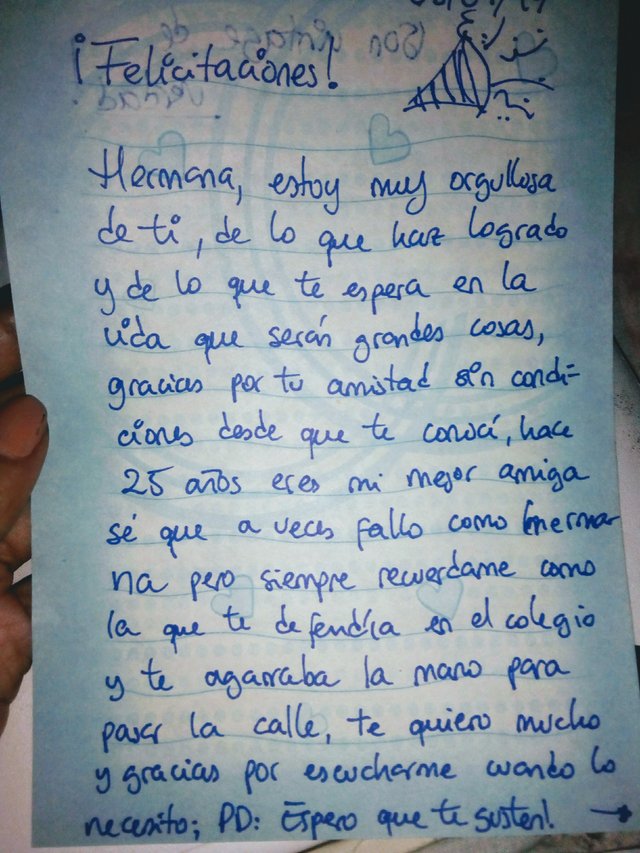 ¡Felicitaciones!
Hermana, estoy muy orgullosa
de ti, de lo que haz logrado
y de lo que te espera en la
vida que serán grandes cosas,
gracias por tu amistad sin condi-
ciones desde que te conocí, hace
25 años eres mi mejor amiga
sé que a veces fallo como herma
na pero siempre recuerdame como
la que te defendía en el colegio
y te agarraba la mano para
pasar la calle, te quiero mucho
y gracias por escucharme cuando lo
necesito; PD: Espero que te gusten! →